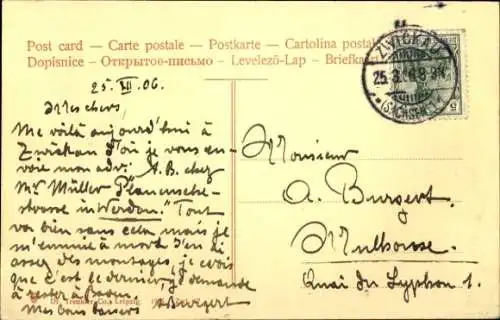 Post card – Carte postale – Postkarte – Cartolina postale
Dopisnice – Открытое-письмо – Levelező-Lap – Briefkaart
ZWICKAU
25.3.06.8-9N
(SACHSEN) 1
5
25. III. 06.
Mes chers,
Me voilà aujourd'hui à
Zwickau d'où je vous en-
voie mon adr. A.B. chez
Mr. Müller "Plauensche-
strasse in Werdau." Tout
va bien sans cela mais je
m'ennuie à mort j'en ai
assez des montages, je crois
que c'est le dernier, je demande
à rester à
Mes bons baisers
A Burgert
Monsieur
A. Burgert.
Mulhouse.
Quai du Syphon 1.
Dr. Trenkler Co., Leipzig.